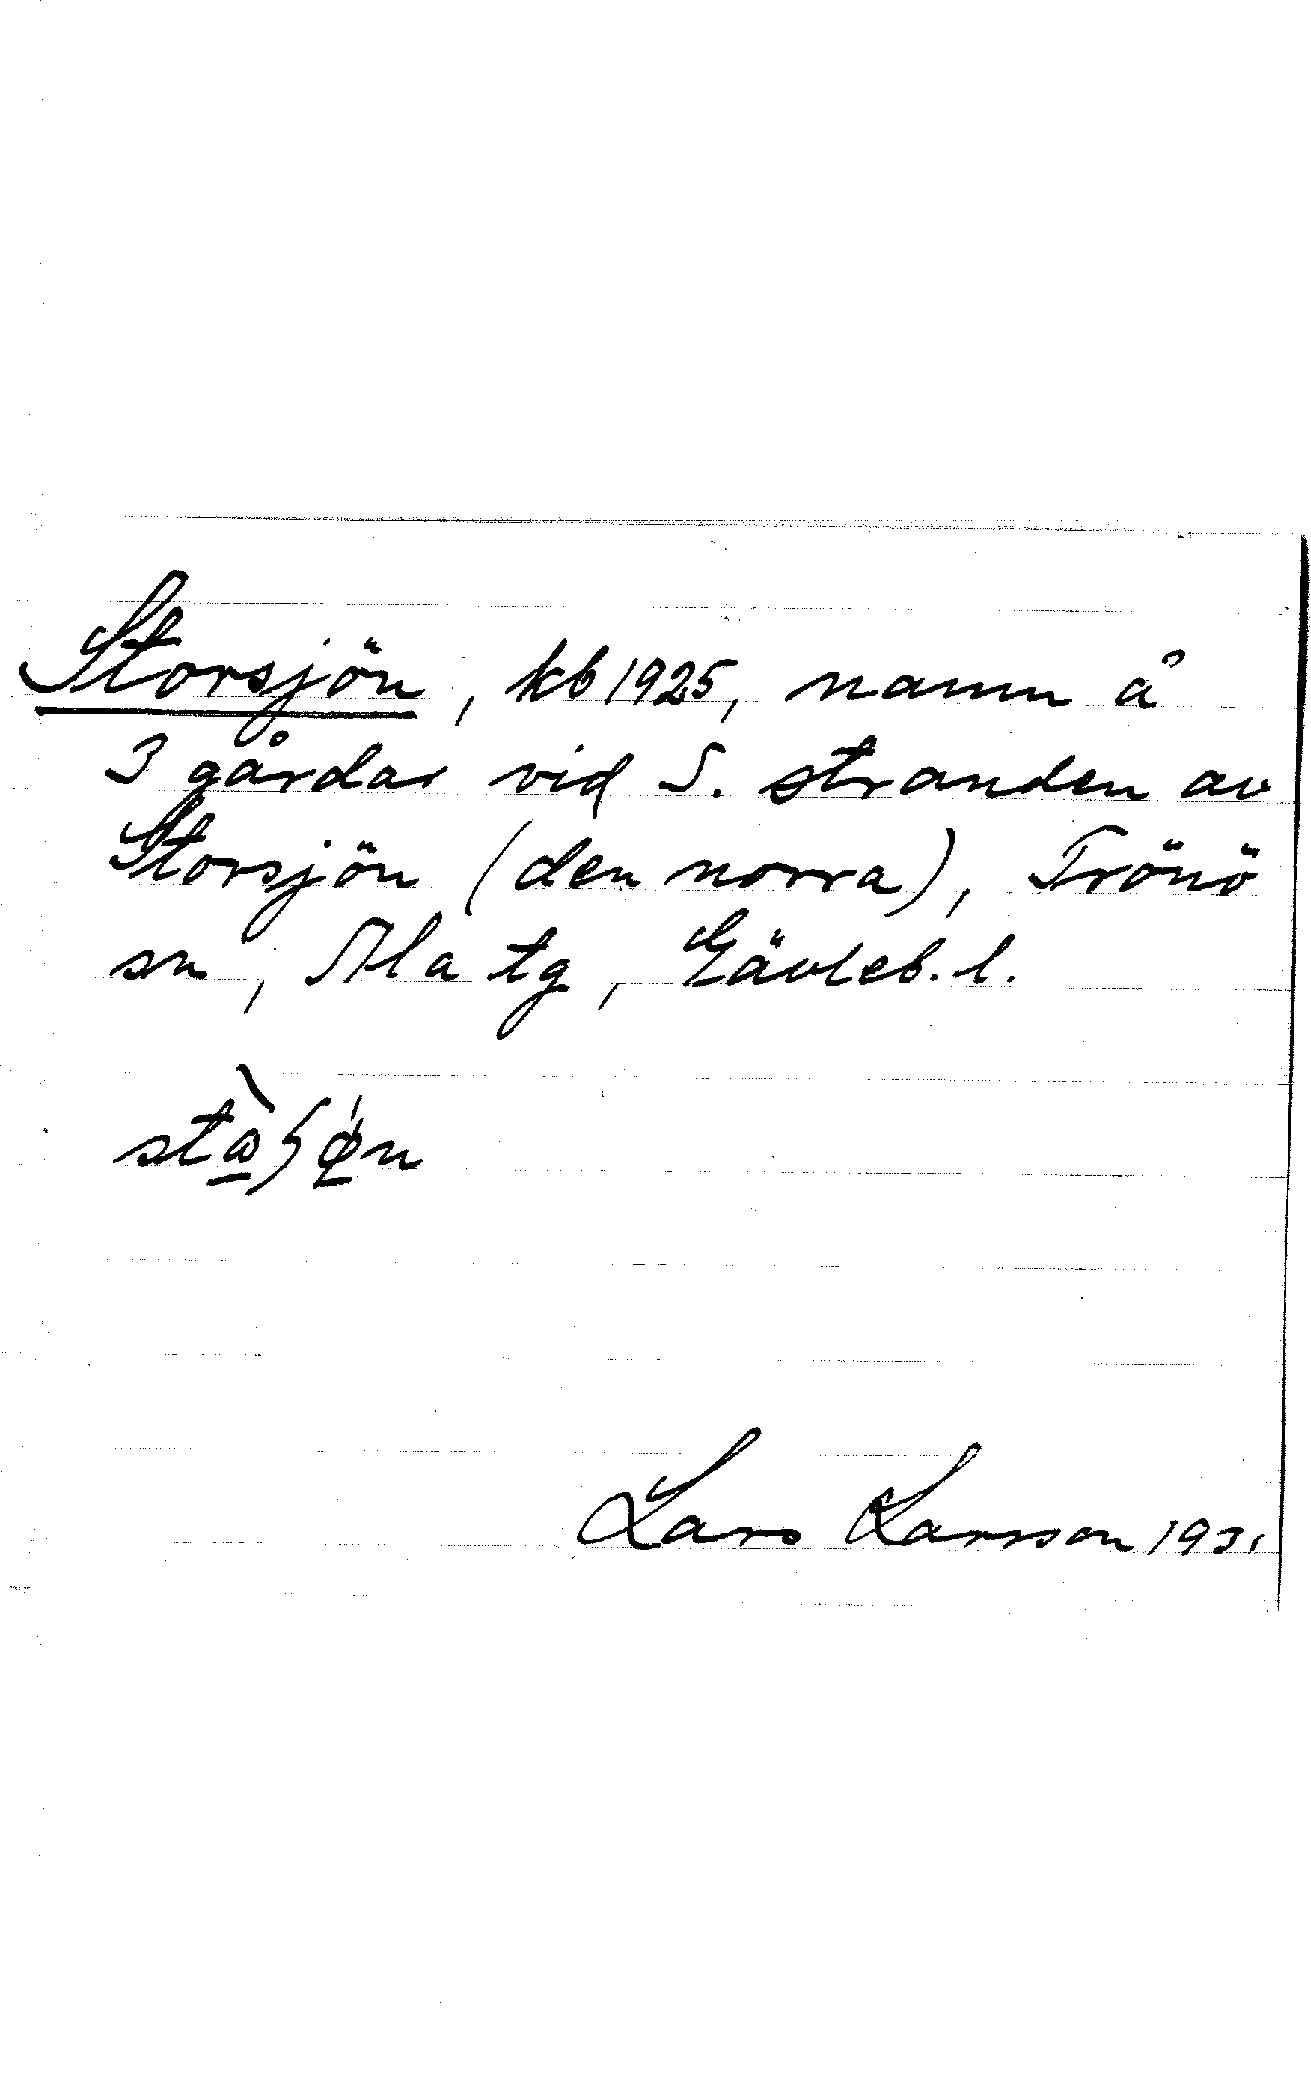 Storsjön, kb 1925, namn å
3 gårdar vid S. stranden av
Storsjön (den norra), Trönö
sn, Ala tg, Gävleb. l.
Lars Larsson 1931